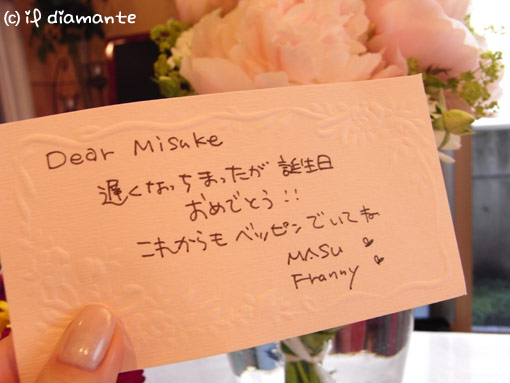 (c) il diamante
Dear Misuke
遅くなっちまったが 誕生日
おめでとう!!
これからも ベッピンでいてね
MASU ♥
Franny ♥